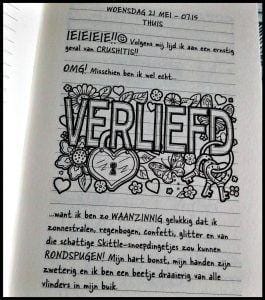 WOENSDAG 21 MEI – 07.15
THUIS
IEIEIEIE!!☺ Volgens mij lijd ik aan een ernstig
geval van CRUSHITIS!!
OMG! Misschien ben ik wel echt
VERLIEFD
...want ik ben zo WAANZINNIG gelukkig dat ik
zonnestralen, regenbogen, confetti, glitter en van
die schattige Skittle-snoepdingetjes zou kunnen
RONDSPUGEN! Mijn hart bonst, mijn handen zijn
zweterig en ik ben een beetje draaierig van alle
vlinders in mijn buik.